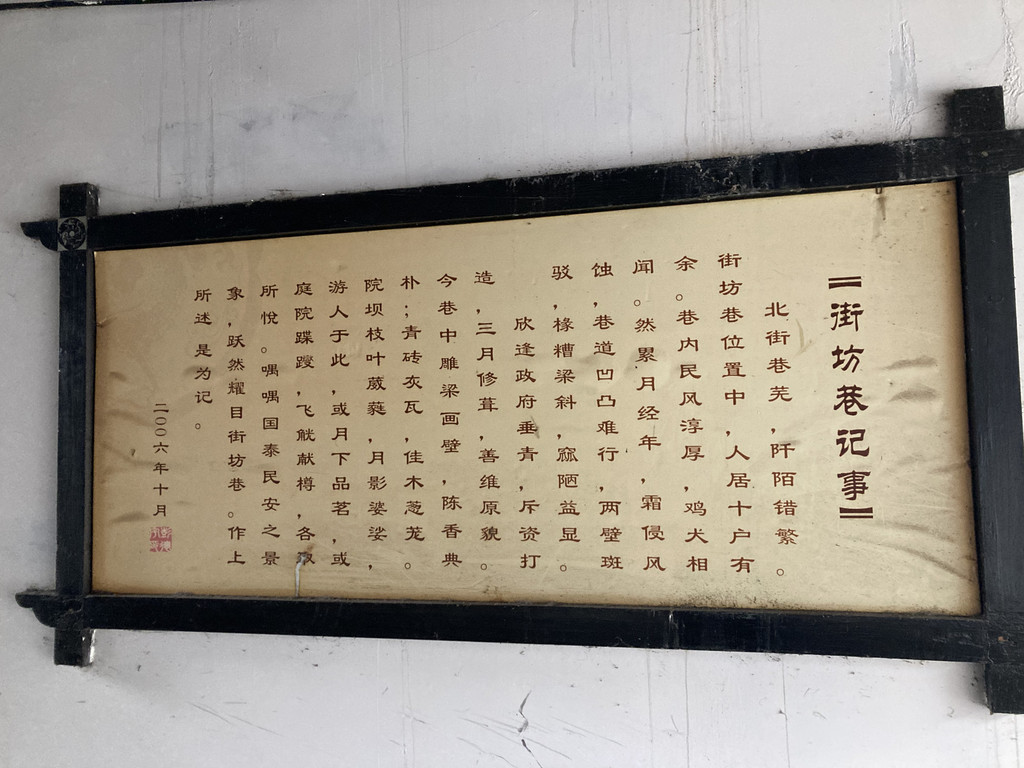 【街坊巷记事】
北街巷芜，阡陌错繁。
街坊巷位置中，人居十户有
余。巷内民风淳厚，鸡犬相
闻。然累月经年，霜侵风
蚀，巷道凹凸难行，两壁斑
驳，椽糟梁斜，窳陋益显。
欣逢政府垂青，斥资打
造，三月修葺，善维原貌。
今巷中雕梁画壁，陈香典
朴；青砖灰瓦，佳木葱茏。
院坝枝叶葳蕤，月影婆娑，
游人于此，或月下品茗，或
庭院蹀躞，飞觥献樽，各
所悦。喁喁国泰民安之景
象，跃然耀目街坊巷。作上
所述是为记。
二〇〇六年十月